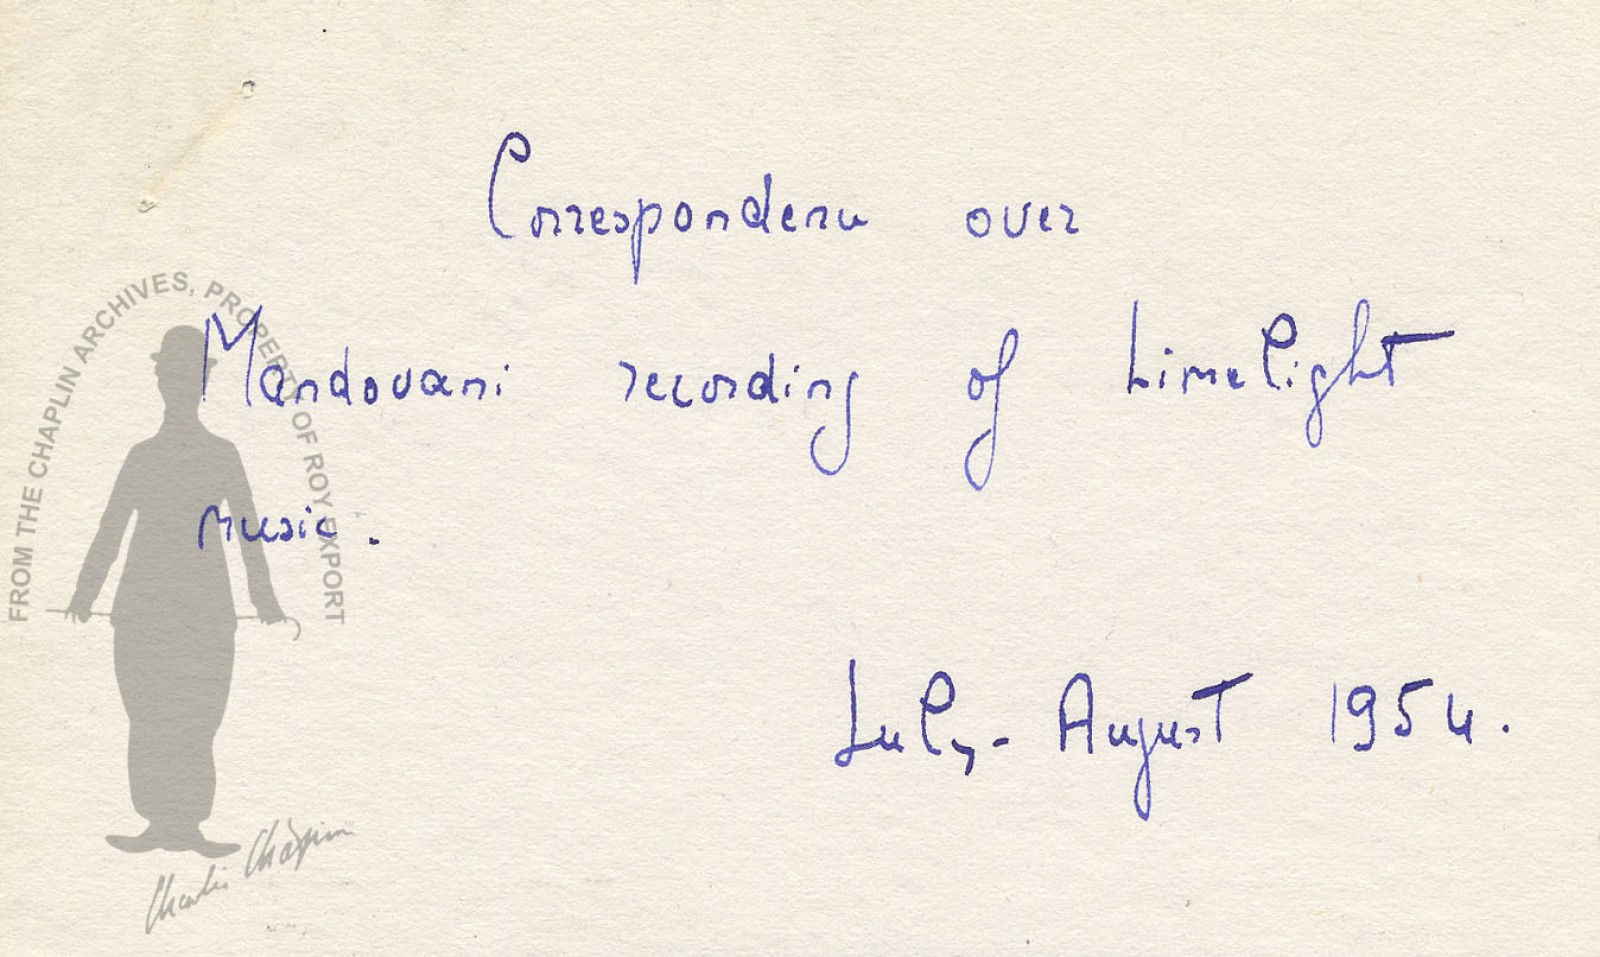 Correspondence over
Mandovani recording of Limelight
music.
July - August 1954.
FROM THE CHAPLIN ARCHIVES, PROPERTY OF ROY EXPORT
Charlie Chaplin